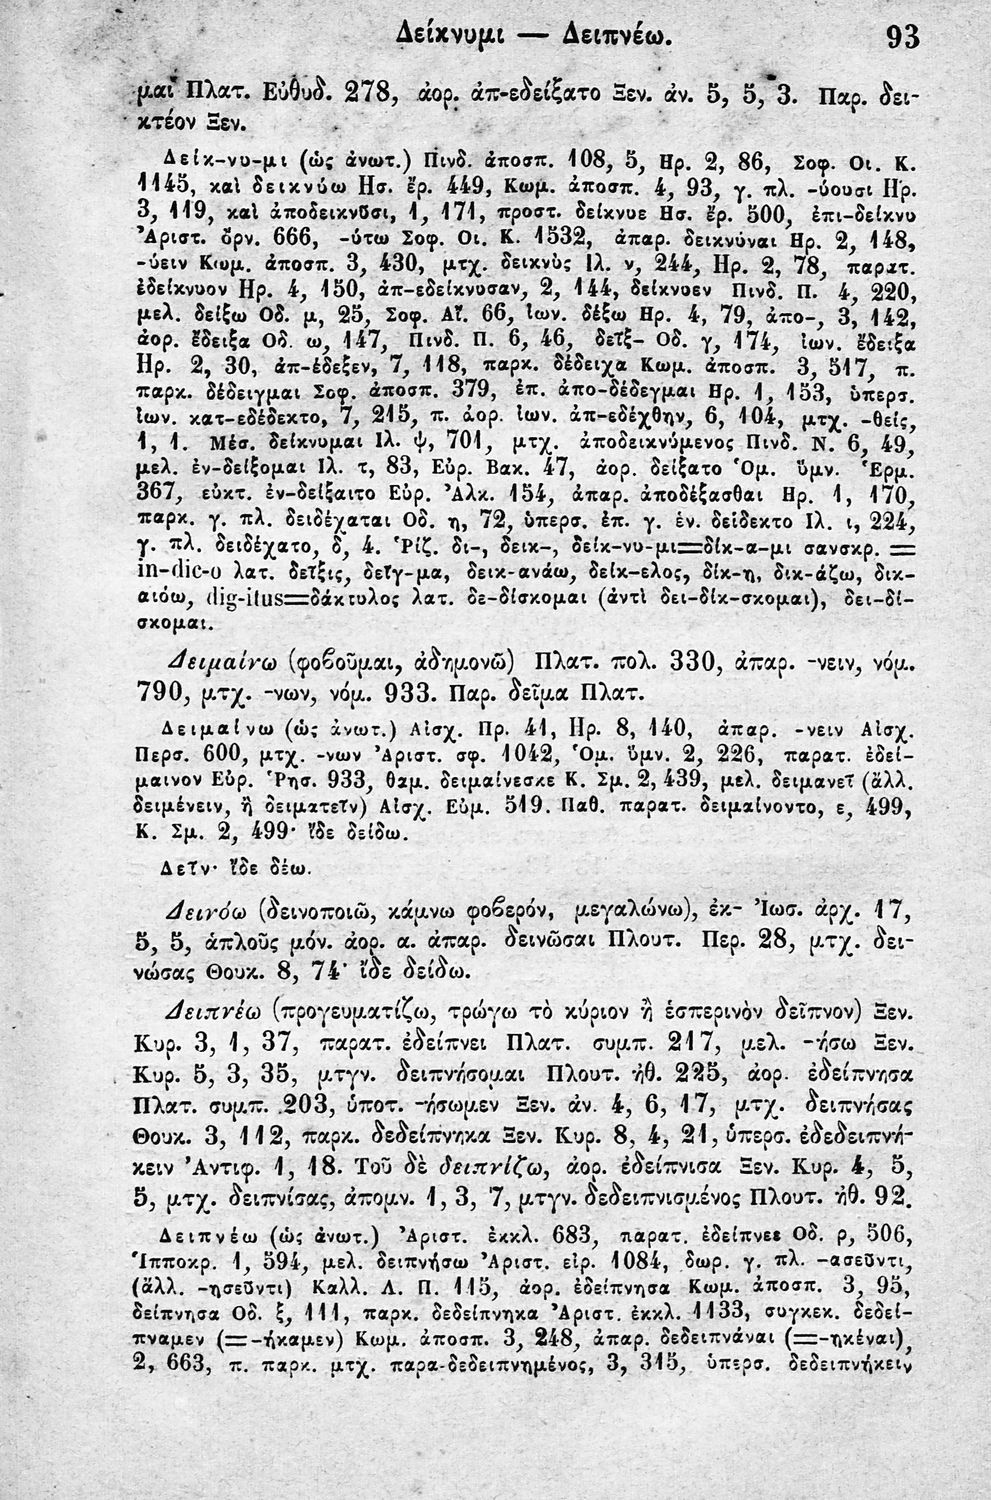 Δείκνυμι — Δειπνέω. 93
μαι Πλατ. Εὐθυδ. 278, ἀορ. ἀπ-εδείξατο Ξεν. ἀν. 5, 5, 3. Παρ. δει-
κτέον Ξεν.
Δείκ-νυ-μι (ὡς ἀνωτ.) Πινδ. ἀποσπ. 108, 5, Ηρ. 2, 86, Σοφ. Οι. Κ.
1145, καὶ δεικνύω Ησ. ἔρ. 449, Κωμ. ἀποσπ. 4, 93, γ. πλ. -ύουσι Ηρ.
3, 119, καὶ ἀποδεικνῦσι, 1, 171, προστ. δείκνυε Ησ. ἔρ. 500, ἐπι-δείκνυ
Ἀριστ. ὄρν. 666, -ύτω Σοφ. Οι. Κ. 1532, ἀπαρ. δεικνύναι Ηρ. 2, 148,
-ύειν Κωμ. ἀποσπ. 3, 430, μτχ. δεικνὺς Ιλ. ν, 244, Ηρ. 2, 78, παρατ.
ἐδείκνυον Ηρ. 4, 150, ἀπ-εδείκνυσαν, 2, 144, δείκνυεν Πινδ. Π. 4, 220,
μελ. δείξω Οδ. μ, 25, Σοφ. Αἴ. 66, ἰων. δέξω Ηρ. 4, 79, ἀπο-, 3, 142,
ἀορ. ἔδειξα Οδ. ω, 147, Πινδ. Π. 6, 46, δεῖξ- Οδ. γ, 174, ἰων. ἔδειξα
Ηρ. 2, 30, ἀπ-έδεξεν, 7, 118, παρκ. δέδειχα Κωμ. ἀποσπ. 3, 517, π.
παρκ. δέδειγμαι Σοφ. ἀποσπ. 379, ἐπ. ἀπο-δέδεγμαι Ηρ. 1, 153, ὑπερσ.
ἰων. κατ-εδέδεκτο, 7, 215, π. ἀορ. ἰων. ἀπ-εδέχθην, 6, 104, μτχ. -θείς,
1, 1. Μέσ. δείκνυμαι Ιλ. ψ, 701, μτχ. ἀποδεικνύμενος Πινδ. Ν. 6, 49,
μελ. ἐν-δείξομαι Ιλ. τ, 83, Εὐρ. Βακ. 47, ἀορ. δείξατο Ὁμ. ὕμν. Ἑρμ.
367, εὐκτ. ἐν-δείξαιτο Εὐρ. Ἀλκ. 154, ἀπαρ. ἀποδέξασθαι Ηρ. 1, 170,
παρκ. γ. πλ. δειδέχαται Οδ. η, 72, ὑπερσ. ἐπ. γ. ἑν. δείδεκτο Ιλ. ι, 224,
γ. πλ. δειδέχατο, δ, 4. Ῥίζ. δι-, δεικ-, δείκ-νυ-μι=δίκ-α-μι σανσκρ. =
in-dic-o λατ. δεῖξις, δεῖγ-μα, δεικ-ανάω, δείκ-ελος, δίκ-η, δικ-άζω, δικ-
αιόω, dig-itus=δάκτυλος λατ. δε-δίσκομαι (ἀντὶ δει-δίκ-σκομαι), δει-δί-
σκομαι.
Δειμαίνω (φοβοῦμαι, ἀδημονῶ) Πλατ. πολ. 330, ἀπαρ. -νειν, νόμ.
790, μτχ. -νων, νόμ. 933. Παρ. δεῖμα Πλατ.
Δειμαίνω (ὡς ἀνωτ.) Αἰσχ. Πρ. 41, Ηρ. 8, 140, ἀπαρ. -νειν Αἰσχ.
Περσ. 600, μτχ. -νων Ἀριστ. σφ. 1042, Ὁμ. ὕμν. 2, 226, παρατ. ἐδεί-
μαινον Εὐρ. Ῥησ. 933, θαμ. δειμαίνεσκε Κ. Σμ. 2, 439, μελ. δειμανεῖ (ἄλλ.
δειμένειν, ἢ δειματεῖν) Αἰσχ. Εὐμ. 519. Παθ. παρατ. δειμαίνοντο, ε, 499,
Κ. Σμ. 2, 499· ἴδε δείδω.
Δεῖν· ἴδε δέω.
Δεινόω (δεινοποιῶ, κάμνω φοβερόν, μεγαλώνω), ἐκ- Ἰωσ. ἀρχ. 17,
5, 5, ἁπλοῦς μόν. ἀορ. α. ἀπαρ. δεινῶσαι Πλουτ. Περ. 28, μτχ. δει-
νώσας Θουκ. 8, 74· ἴδε δείδω.
Δειπνέω (προγευματίζω, τρώγω τὸ κύριον ἢ ἑσπερινὸν δεῖπνον) Ξεν.
Κυρ. 3, 1, 37, παρατ. ἐδείπνει Πλατ. συμπ. 217, μελ. -ήσω Ξεν.
Κυρ. 5, 3, 35, μτγν. δειπνήσομαι Πλουτ. ἠθ. 225, ἀορ. ἐδείπνησα
Πλατ. συμπ. 203, ὑποτ. -ήσωμεν Ξεν. ἀν. 4, 6, 17, μτχ. δειπνήσας
Θουκ. 3, 112, παρκ. δεδείπνηκα Ξεν. Κυρ. 8, 4, 21, ὑπερσ. ἐδεδειπνή-
κειν Ἀντιφ. 1, 18. Τοῦ δὲ δειπνίζω, ἀορ. ἐδείπνισα Ξεν. Κυρ. 4, 5,
5, μτχ. δειπνίσας, ἀπομν. 1, 3, 7, μτγν. δεδειπνισμένος Πλουτ. ἠθ. 92.
Δειπνέω (ὡς ἀνωτ.) Ἀριστ. ἐκκλ. 683, παρατ. ἐδείπνεε Οδ. ρ, 506,
Ἱπποκρ. 1, 594, μελ. δειπνήσω Ἀριστ. εἰρ. 1084, δωρ. γ. πλ. -ασεῦντι,
(ἄλλ. -ησεῦντι) Καλλ. Λ. Π. 115, ἀορ. ἐδείπνησα Κωμ. ἀποσπ. 3, 95,
δείπνησα Οδ. ξ, 111, παρκ. δεδείπνηκα Ἀριστ. ἐκκλ. 1133, συγκεκ. δεδεί-
πναμεν (=-ήκαμεν) Κωμ. ἀποσπ. 3, 248, ἀπαρ. δεδειπνάναι (=-ηκέναι),
2, 663, π. παρκ. μτχ. παρα-δεδειπνημένος, 3, 315, ὑπερσ. δεδειπνήκειν